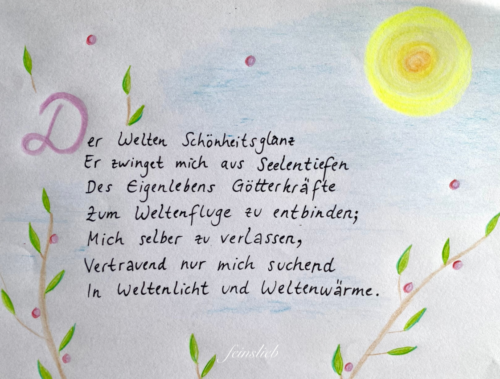 Der Welten Schönheitsglanz
Er zwinget mich aus Seelentiefen
Des Eigenlebens Götterkräfte
Zum Weltenfluge zu entbinden;
Mich selber zu verlassen,
Vertrauend nur mich suchend
In Weltenlicht und Weltenwärme.
feinslieb